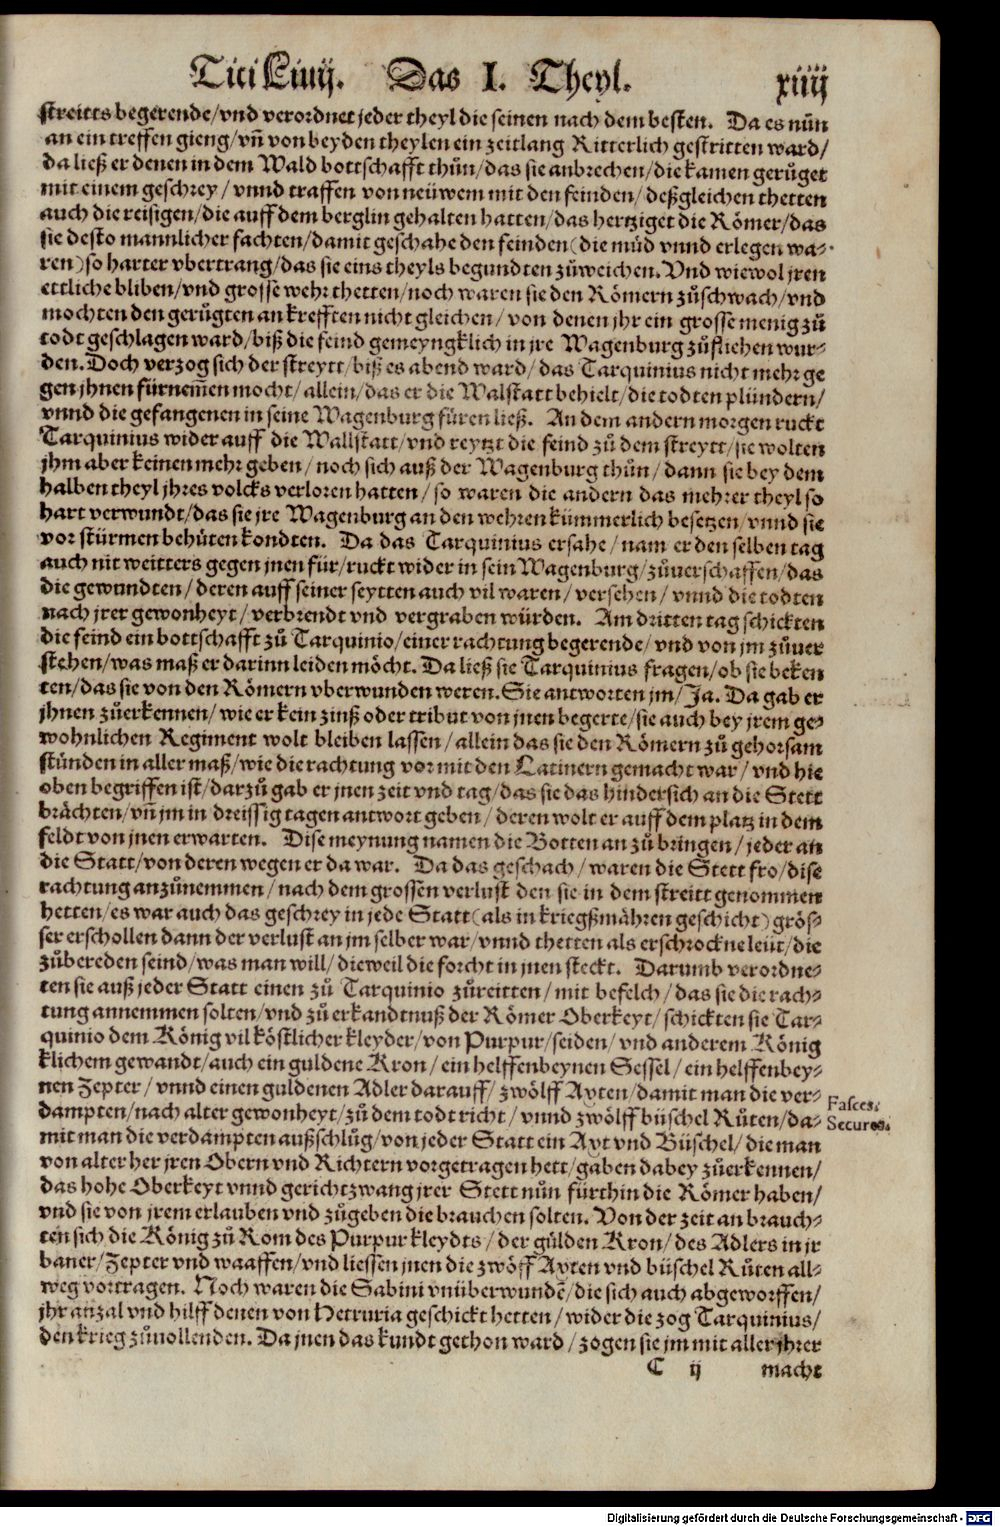 Titi Liuij. Das I. Theyl. xiiij
streitts begerende/vnd verordnet jeder theyl die seinen nach dem besten. Da es nůn
an ein treffen gieng/vñ von beyden theylen ein zeitlang Ritterlich gestritten ward/
da ließ er denen in dem Wald bottschafft thůn/das sie anbrechen/die kamen gerůget
mit einem geschrey/vnnd traffen von neüwem mit den feinden/deßgleichen thetten
auch die reisigen/die auff dem berglin gehalten hatten/das hertziget die Römer/das
sie desto mannlicher fachten/damit geschahe den feinden (die müd vnnd erlegen wa-
ren) so harter vbertrang/das sie eins theyls begundten zůweichen. Vnd wiewol jren
ettliche bliben/vnd grosse wehr thetten/noch waren sie den Römern zůschwach/vnd
mochten den gerůgten an krefften nicht gleichen/von denen jhr ein grosse menig zů
todt geschlagen ward/biß die feind gemeyngklich in jre Wagenburg zůfliehen wur-
den. Doch verzog sich der streytt/biß es abend ward/das Tarquinius nicht mehr ge
gen jhnen fürnem̃en mocht/allein/das er die Walstatt behielt/die todten plündern/
vnnd die gefangenen in seine Wagenburg füren ließ. An dem andern morgen ruckt
Tarquinius wider auff die Wallstatt/vnd reytzt die feind zů dem streytt/sie wolten
jhm aber keinen mehr geben/noch sich auß der Wagenburg thůn/dann sie bey dem
halben theyl jhres volcks verloren hatten/so waren die andern das mehrer theyl so
hart verwundt/das sie jre Wagenburg an den wehren kümmerlich besetzen/vnnd sie
vor stürmen behüten kondten. Da das Tarquinius ersahe/nam er den selben tag
auch nit weitters gegen jnen für/ruckt wider in sein Wagenburg/zůverschaffen/das
die gewundten/deren auff seiner seytten auch vil waren/versehen/vnnd die todten
nach jrer gewonheyt/verbrendt vnd vergraben würden. Am dritten tag schickten
die feind ein bottschafft zů Tarquinio/einer rachtung begerende/vnd von jm zůver
stehen/was maß er darinn leiden möcht. Da ließ sie Tarquinius fragen/ob sie beken
ten/das sie von den Römern vberwunden weren. Sie antworten jm/Ja. Da gab er
jhnen zůerkennen/wie er kein zinß oder tribut von jnen begerte/sie auch bey jrem ge-
wohnlichen Regiment wolt bleiben lassen/allein das sie den Römern zů gehorsam
stünden in aller maß/wie die rachtung vor mit den Latinern gemacht war/vnd hie
oben begriffen ist/darzů gab er jnen zeit vnd tag/das sie das hindersich an die Stett
brächten/vñ jm in dreissig tagen antwort geben/deren wolt er auff dem platz in dem
feldt von jnen erwarten. Dise meynung namen die Botten an zů bringen/jeder an
die Statt/von deren wegen er da war. Da das geschach/waren die Stett fro/dise
rachtung anzůnemmen/nach dem grossen verlust den sie in dem streitt genommen
hetten/es war auch das geschrey in jede Statt (als in kriegßmähren geschicht) grös-
ser erschollen dann der verlust an jm selber war/vnnd thetten als erschrockne leüt/die
zůbereden seind/was man will/dieweil die forcht in jnen steckt. Darumb verordne-
ten sie auß jeder Statt einen zů Tarquinio zůreitten/mit befelch/das sie die rach-
tung annemmen solten/vnd zů erkandtnuß der Römer Oberkeyt/schickten sie Tar-
quinio dem König vil köstlicher kleyder/von Purpur/seiden/vnd anderem König
klichem gewandt/auch ein guldene Kron/ein helffenbeynen Sessel/ein helffenbey-
nen Zepter/vnnd einen guldenen Adler darauff/zwölff Axten/damit man die ver-
dampten/nach alter gewonheyt/zů dem todt richt/vnnd zwölff büschel Růten/da-
mit man die verdampten außschlůg/von jeder Statt ein Axt vnd Büschel/die man
von alter her jren Obern vnd Richtern vorgetragen hett/gaben dabey zůerkennen/
das hohe Oberkeyt vnnd gerichtzwang jrer Stett nůn fürthin die Römer haben/
vnd sie von jrem erlauben vnd zůgeben die brauchen solten. Von der zeit an brauch-
ten sich die König zů Rom des Purpurkleydts/der gülden Kron/des Adlers in jr
baner/Zepter vnd waaffen/vnd liessen jnen die zwölff Axten vnd büschel Růten all-
weg vortragen. Noch waren die Sabini vnüberwundẽ/die sich auch abgeworffen/
jhr anzal vnd hilff denen von Hetruria geschickt hetten/wider die zog Tarquinius/
den krieg zůuollenden. Da jnen das kundt gethon ward/zogen sie jm mit aller jhrer
Fasces.
Secures.
C ij macht
Digitalisierung gefördert durch die Deutsche Forschungsgemeinschaft - DFG